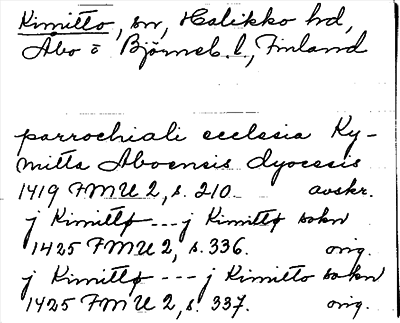 Kimitto, sn, Halikko hd,
Åbo o Björneb. l., Finland
parrochiali ecclesia Ky-
mitta Aboensis dyocesis
1419 FMU 2, s. 210. avskr.
j Kimittø --- j Kimittø sokn
1425 FMU 2, s. 336. orig.
j Kimittø --- j Kimitto sokn
1425 FMU 2, s. 337. orig.